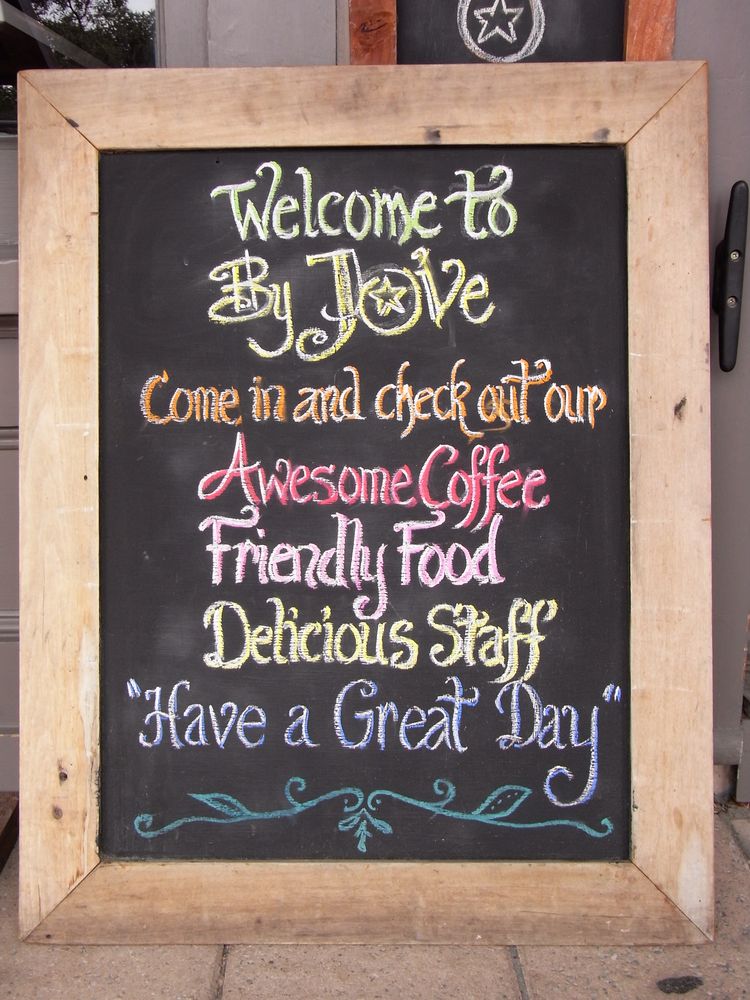 Welcome to
By Jove
Come in and check out our
Awesome Coffee
Friendly Food
Delicious Staff
"Have a Great Day"